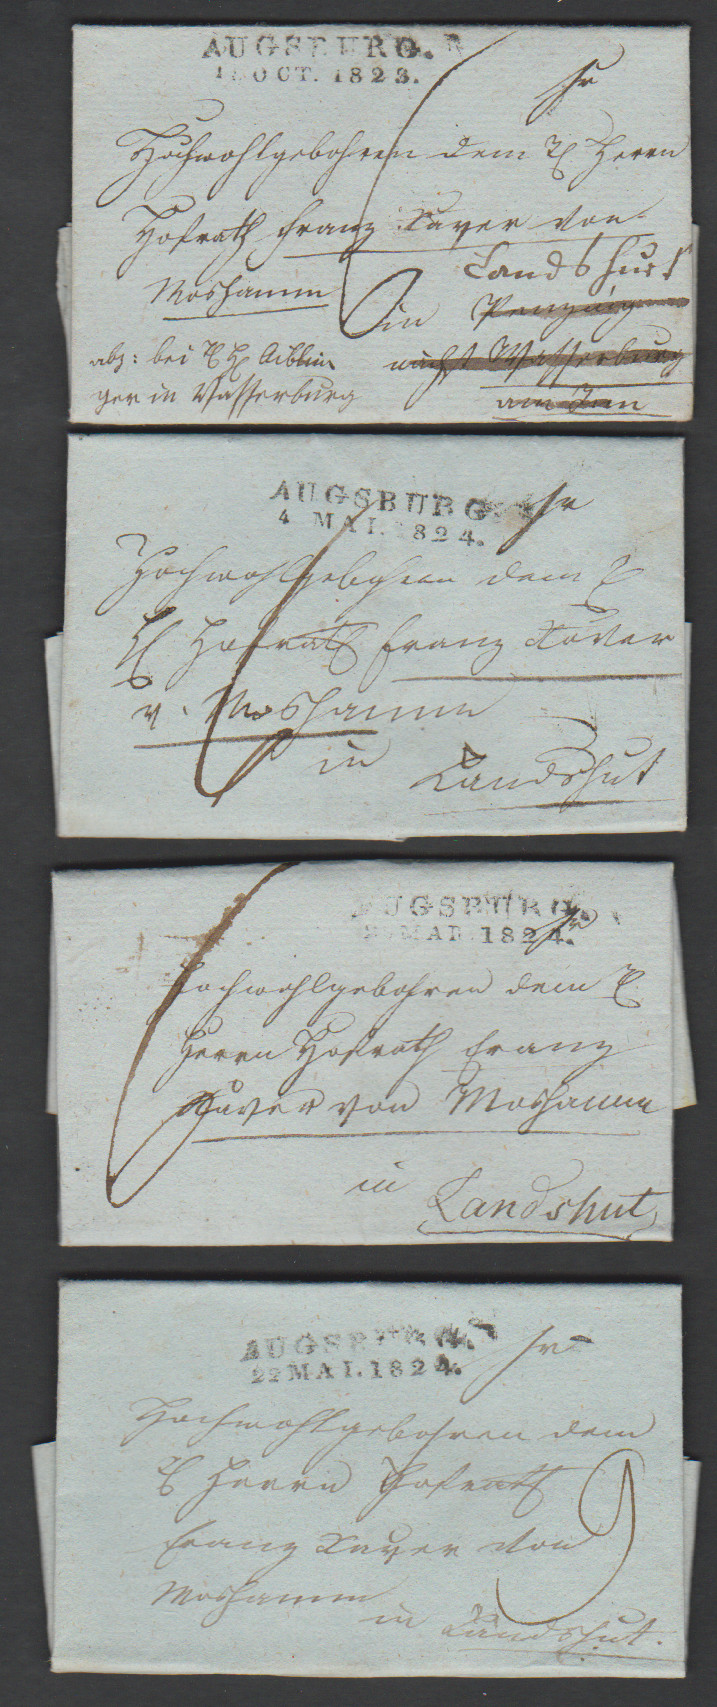 AUGSBURG. R
OCT. 1823.
fr
Hochwohlgebohren dem Herrn
Hofrath Franz Xaver von
Moshamm Landshut
in Penzing
nächst Wasserburg
am Inn
abz: bei Aiblin
ger in Wasserburg
AUGSBURG.
4 MAI. 1824.
fr
Hochwohlgebohren dem
Hofrath Franz Xaver
v. Moshamm
in Landshut
AUGSBURG.
MAR. 1824.
fr
Hochwohlgebohren dem
Herrn Hofrath Franz
Xaver von Moshamm
in Landshut
AUGSBURG.
22 MAI. 1824.
fr
Hochwohlgebohren dem
Herrn Hofrath
Franz Xaver von
Moshamm
in Landshut.